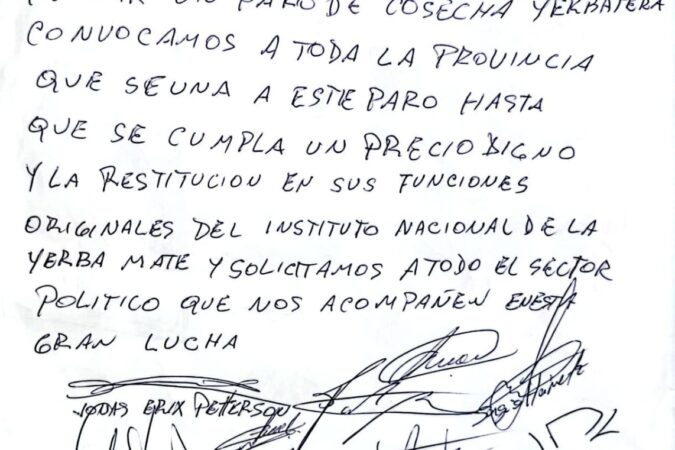 PARO DE COSECHA YERBATERA
CONVOCAMOS A TODA LA PROVINCIA
QUE SE UNA A ESTE PARO HASTA
QUE SE CUMPLA UN PRECIO DIGNO
Y LA RESTITUCION EN SUS FUNCIONES
ORIGINALES DEL INSTITUTO NACIONAL DE LA
YERBA MATE Y SOLICITAMOS A TODO EL SECTOR
POLITICO QUE NOS ACOMPAÑEN EN ESTA
GRAN LUCHA
ERIX PETERSON